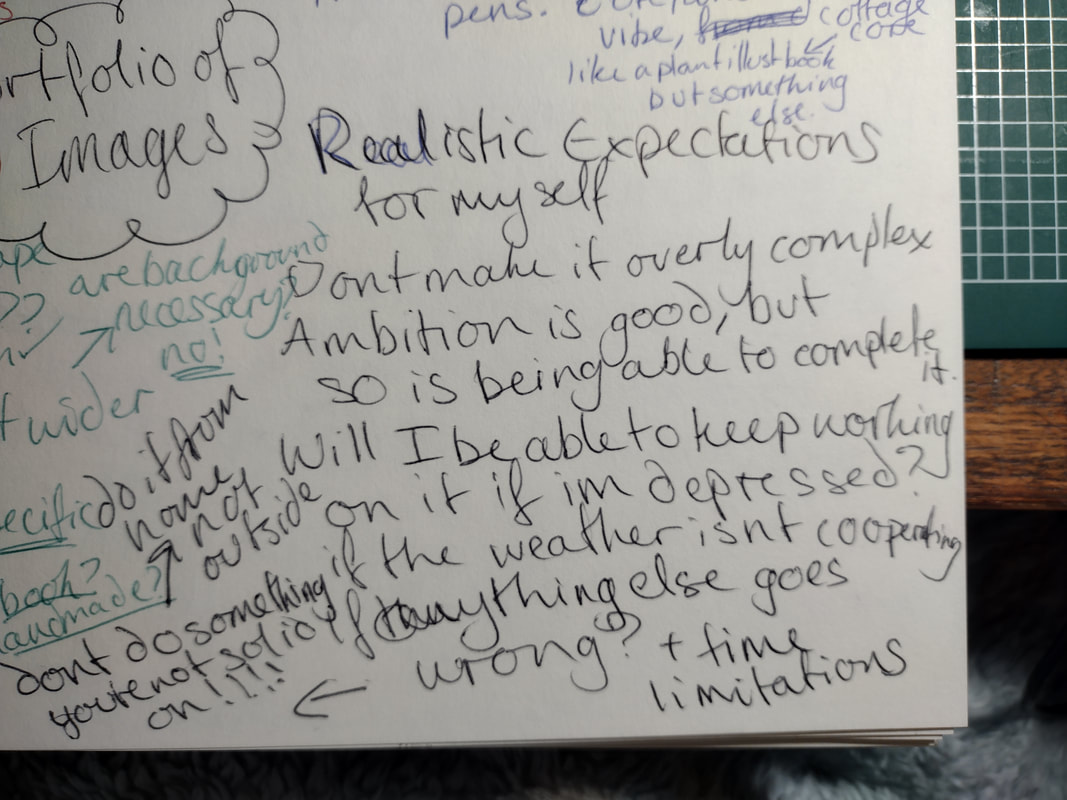 pens.
vibe, cottage
core
like a plant illust book
but something
else.
rtfolio of
Images
Realistic Expectations
for myself
Dont make it overly complex
Ambition is good, but
so is being able to complete
it.
Will I be able to keep working
on it if im depressed?
if the weather isnt cooperating
if anything else goes
wrong? + time
limitations
ape
are background
necessary?
no!
??
t wider
ecific
do it from
home,
not
outside
book?
andmade?
dont do something
youre not solid
on!!!!